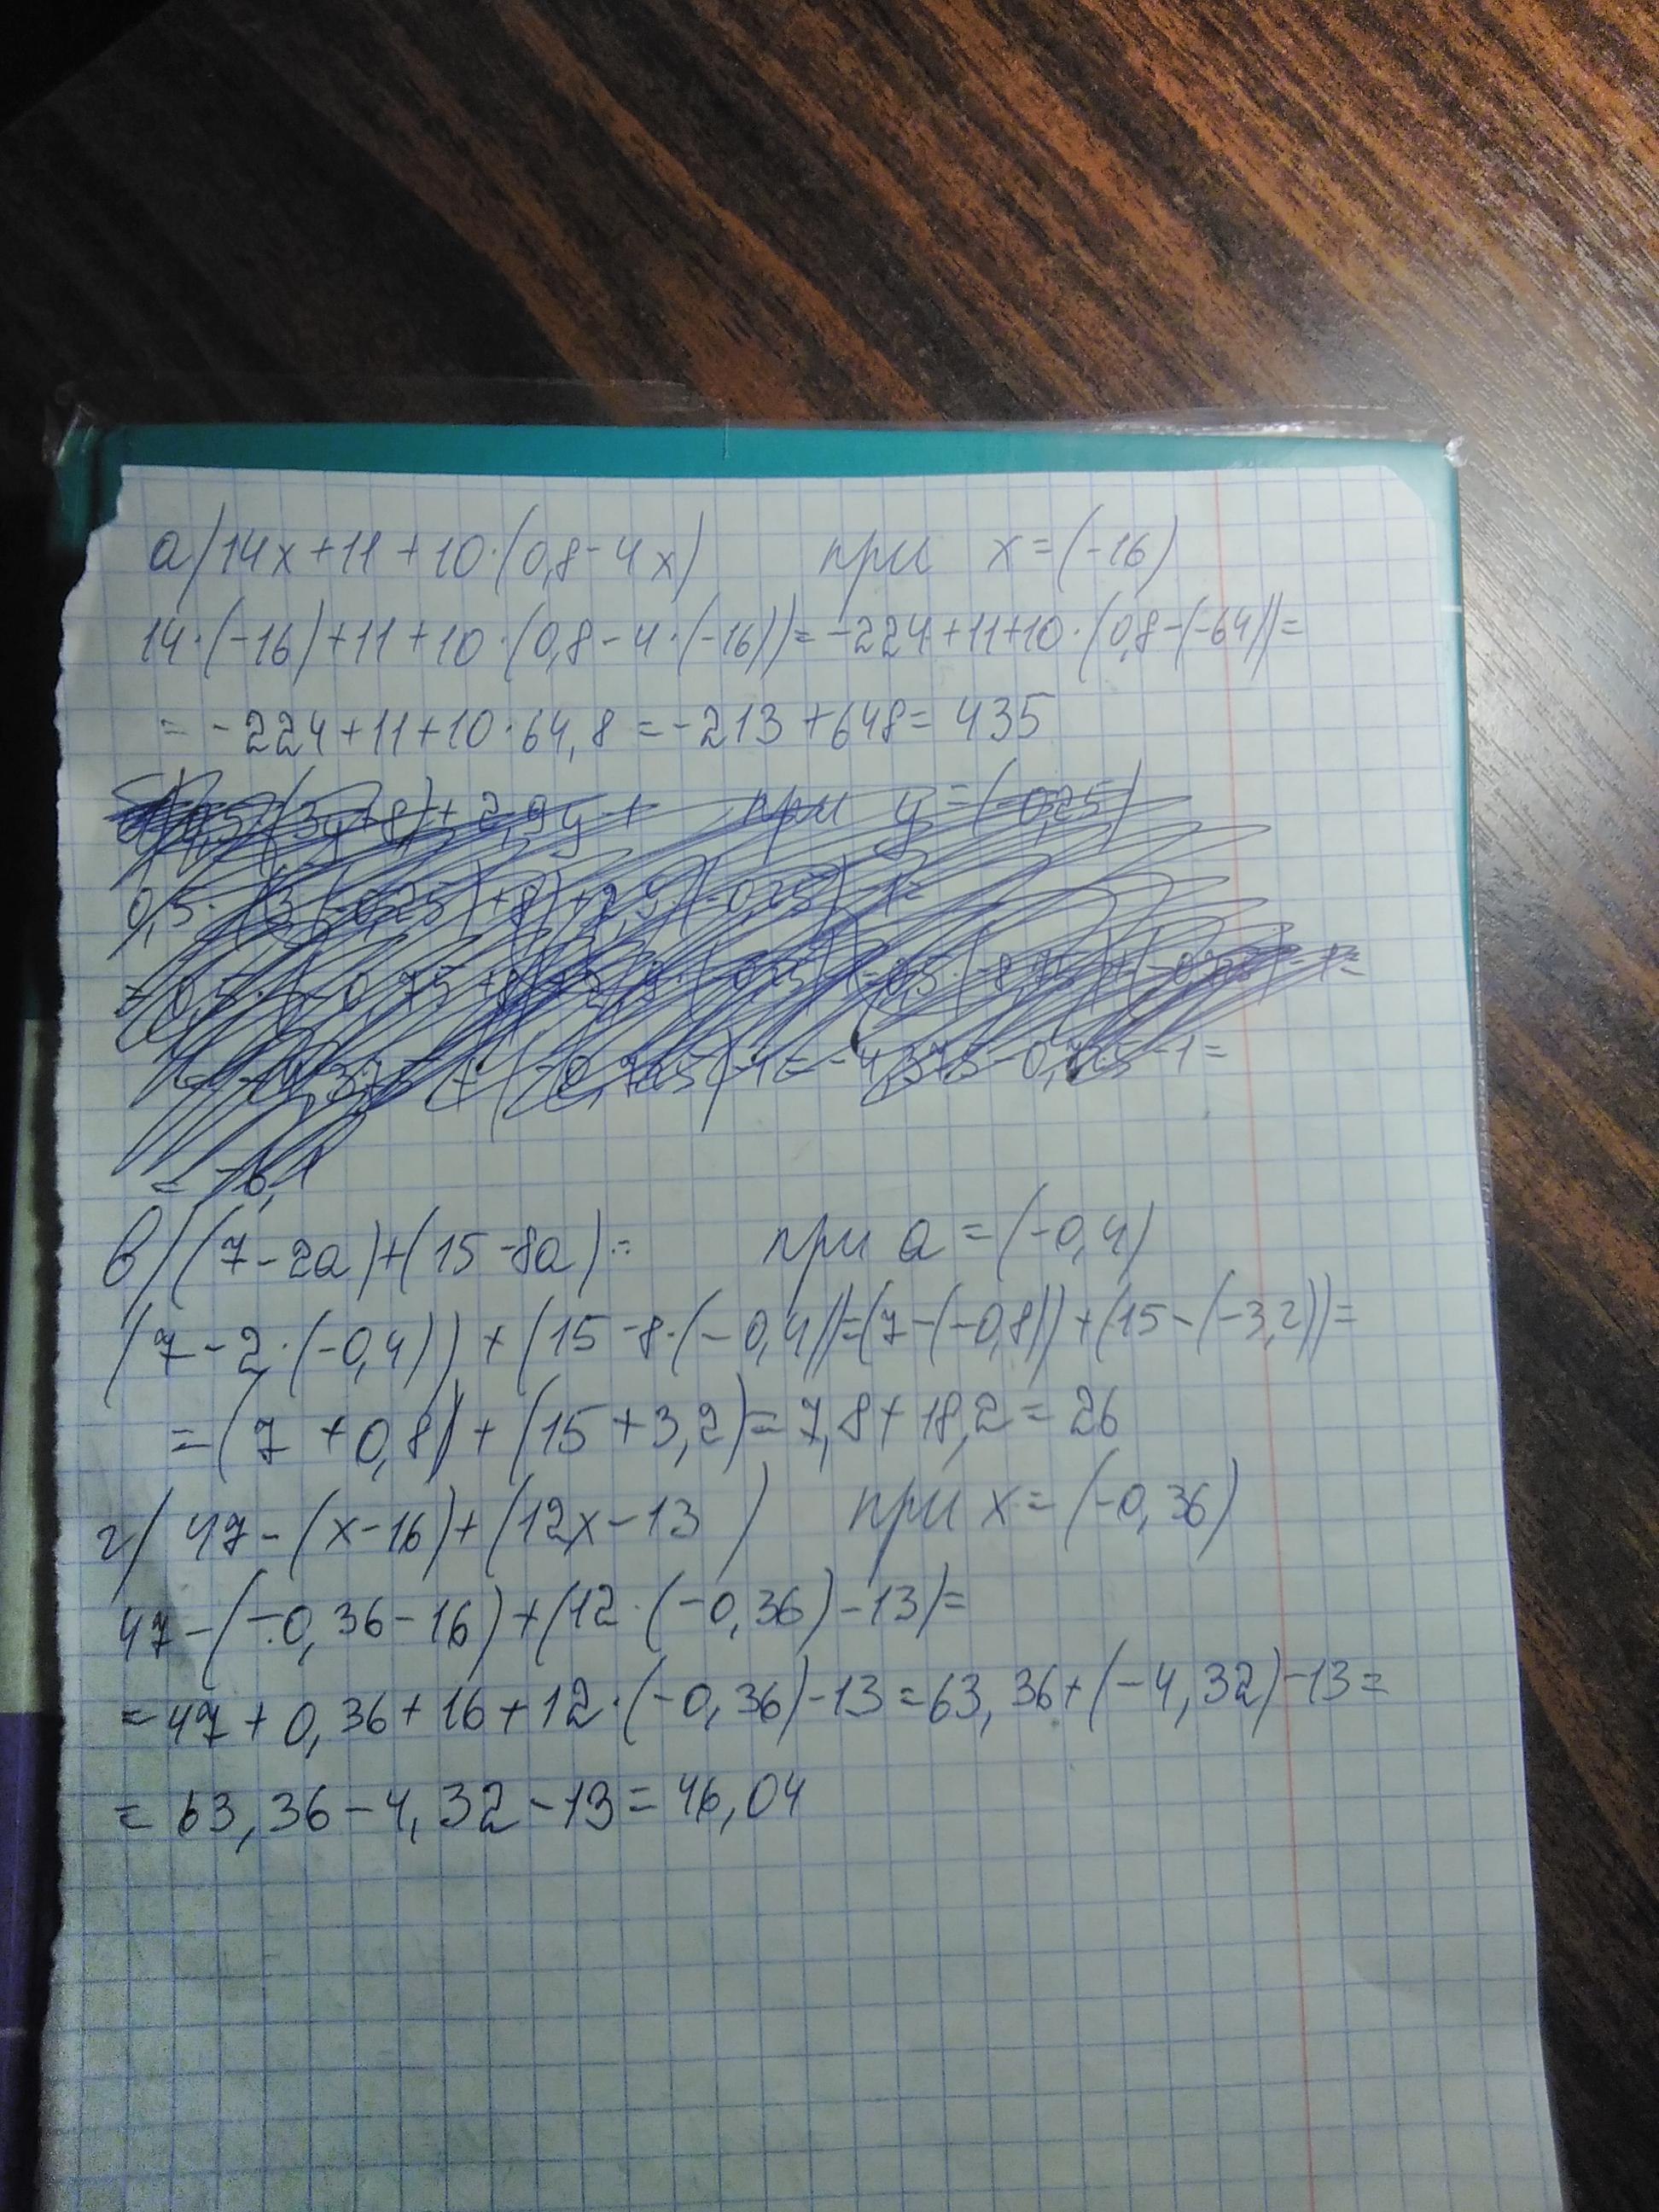 а) 14x+11+10·(0,8-4x) при x=(-16)
14·(-16)+11+10·(0,8-4·(-16))=-224+11+10·(0,8-(-64))=
= -224+11+10·64,8=-213+648=435
(3y+8)+2,9y-1 при y=(-0,25)
0,5·(3·(-0,25)+8)+2,9·(-0,25)-1=
-4,375-0,725-1=
= -6,1
в) (7-2a)+(15-8a)= при a=(-0,4)
(7-2·(-0,4))+(15-8·(-0,4))=(7-(-0,8))+(15-(-3,2))=
=(7+0,8)+(15+3,2)=7,8+18,2=26
г) 47-(x-16)+(12x-13) при x=(-0,36)
47-(-0,36-16)+(12·(-0,36)-13)=
=47+0,36+16+12·(-0,36)-13=63,36+(-4,32)-13=
=63,36-4,32-13=46,04